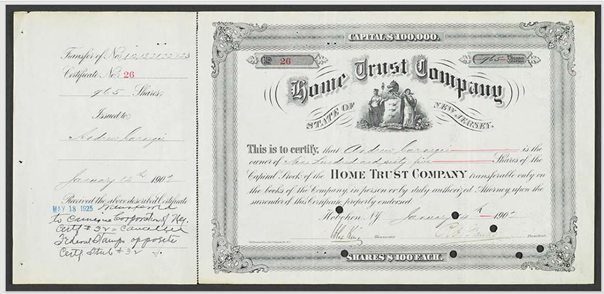 Transfer of No.
Certificate No. 26
965 Shares
Issued to
Andrew Carnegie
January 14th 190
Received the above described Certificate
MAY 18 1925 Transferred
to Carnegie Corporation of N.Y.
Certf # 32 = Cancelled
Federal Stamps opposite
Certf Stub # 32
CAPITAL $400,000.
No. 26
965 Shares
Home Trust Company
STATE OF NEW JERSEY.
This is to certify, that Andrew Carnegie is the
owner of Nine hundred and sixty five Shares of the
Capital Stock of the HOME TRUST COMPANY transferable only on
the books of the Company, in person or by duly authorized Attorney upon the
surrender of this Certificate properly endorsed.
Hoboken NJ January 14th 190
SHARES $100 EACH.